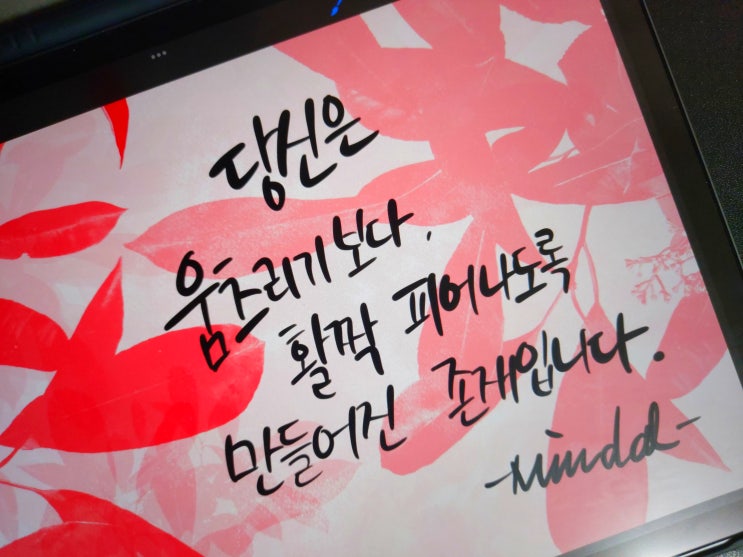 당신은
움츠리기보다,
활짝 피어나도록
만들어진 존재입니다.